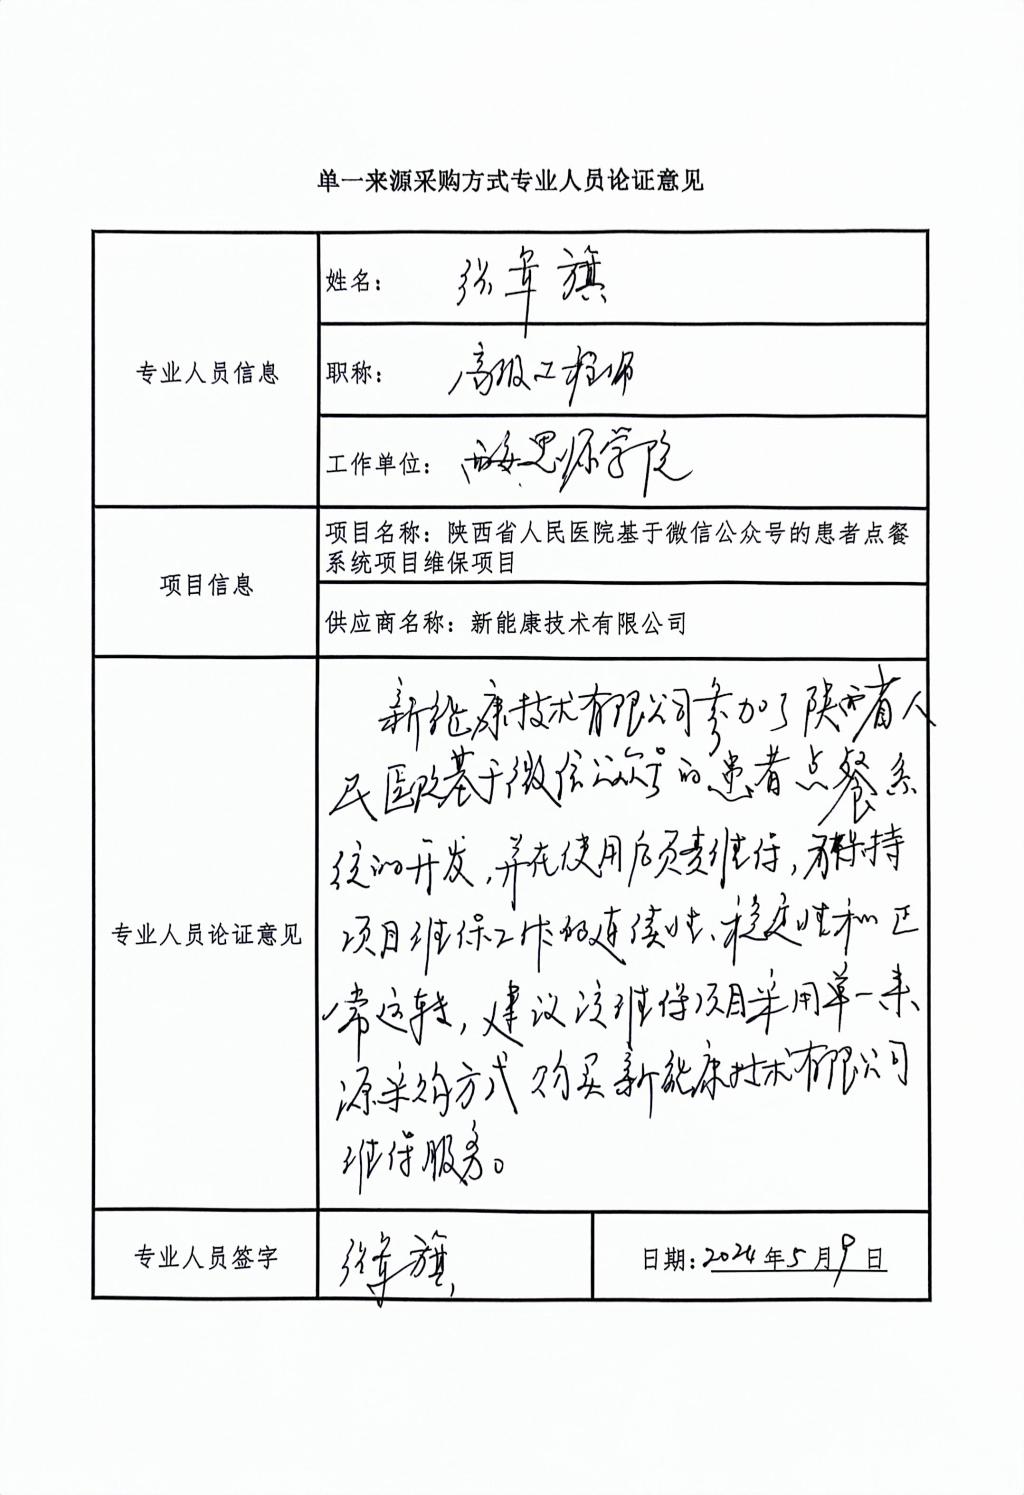 单一来源采购方式专业人员论证意见
专业人员信息
姓名： 张军旗
职称： 高级工程师
工作单位： 西安思源学院
项目信息
项目名称：陕西省人民医院基于微信公众号的患者点餐
系统项目维保项目
供应商名称：新能康技术有限公司
专业人员论证意见
新能康技术有限公司参加了陕西省人
民医院基于微信公众号的患者点餐系
统的开发，并在使用后负责维保，为保持
项目维保工作的连续性、稳定性和正
常运转，建议该维保项目采用单一来
源采购方式购买新能康技术有限公司
维保服务。
专业人员签字
张军旗
日期：2024年5月9日